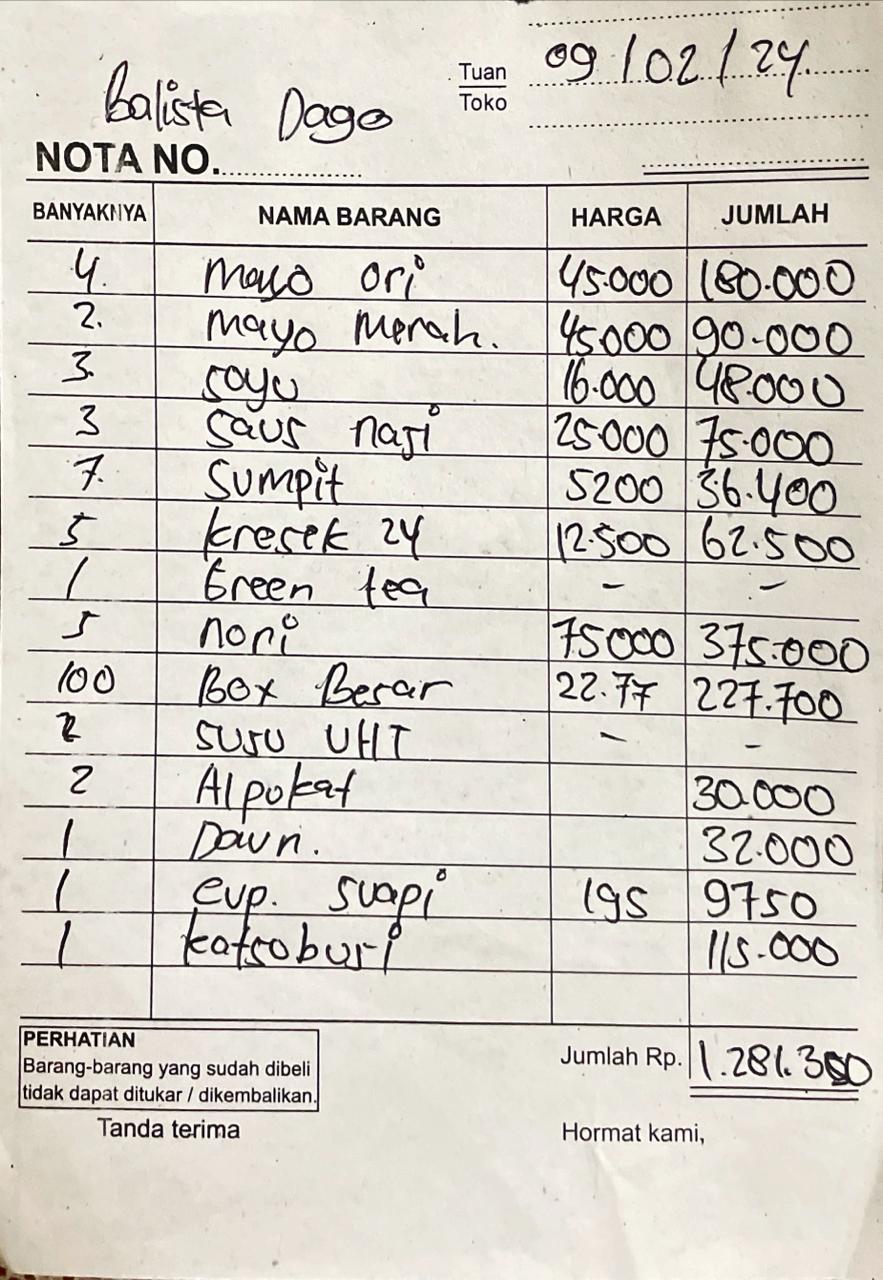 09/02/24
Tuan
Toko
Balista Dago
NOTA NO.
BANYAKNYA NAMA BARANG HARGA JUMLAH
4. mayo ori 45.000 180.000
2. mayo merah. 45000 90.000
3. soyu 16.000 48.000
3 saus nasi 25.000 75.000
7. sumpit 5200 36.400
5 kresek 24 12.500 62.500
1 Green tea - -
5 nori 75000 375.000
100 Box Besar 22.77 227.700
2 susu UHT - -
2 Alpukat 30.000
1 Daun. 32.000
1 cup. suapi 195 9750
1 katsobusi 115.000
PERHATIAN
Barang-barang yang sudah dibeli
tidak dapat ditukar / dikembalikan.
Jumlah Rp. 1.281.350
Tanda terima Hormat kami,